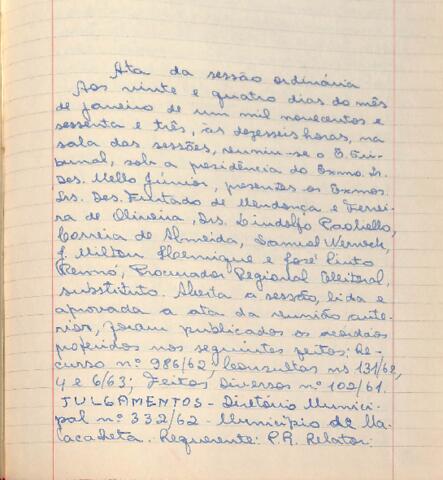 Ata da sessão ordinária
Aos vinte e quatro dias do mês
de janeiro de um mil novecentos e
sessenta e três, às dezesseis horas, na
sala das sessões, reuniu-se o E. Tri-
bunal, sob a presidência do Exmo. Sr.
Des. Mello Júnior, presentes os Exmos.
Srs. Des. Furtado de Mendonça e Ferrei-
ra de Oliveira, Drs. Lindolfo Paoliello,
Correia de Almeida, Samuel Werneck,
J. Milton Henrique e José Pinto
Renó, Procurador Regional Eleitoral,
substituto. Aberta a sessão, lida e
aprovada a ata da reunião ante-
rior, foram publicados os acórdãos
proferidos nos seguintes feitos: Re-
curso nº 986/62; Consultas ns 131/62,
4 e 6/63; Feitos Diversos nº 102/61.
JULGAMENTOS - Diretório Munici-
pal nº 332/62 - Município de Ma-
lacacheta. Requerente: P.R. Relator: